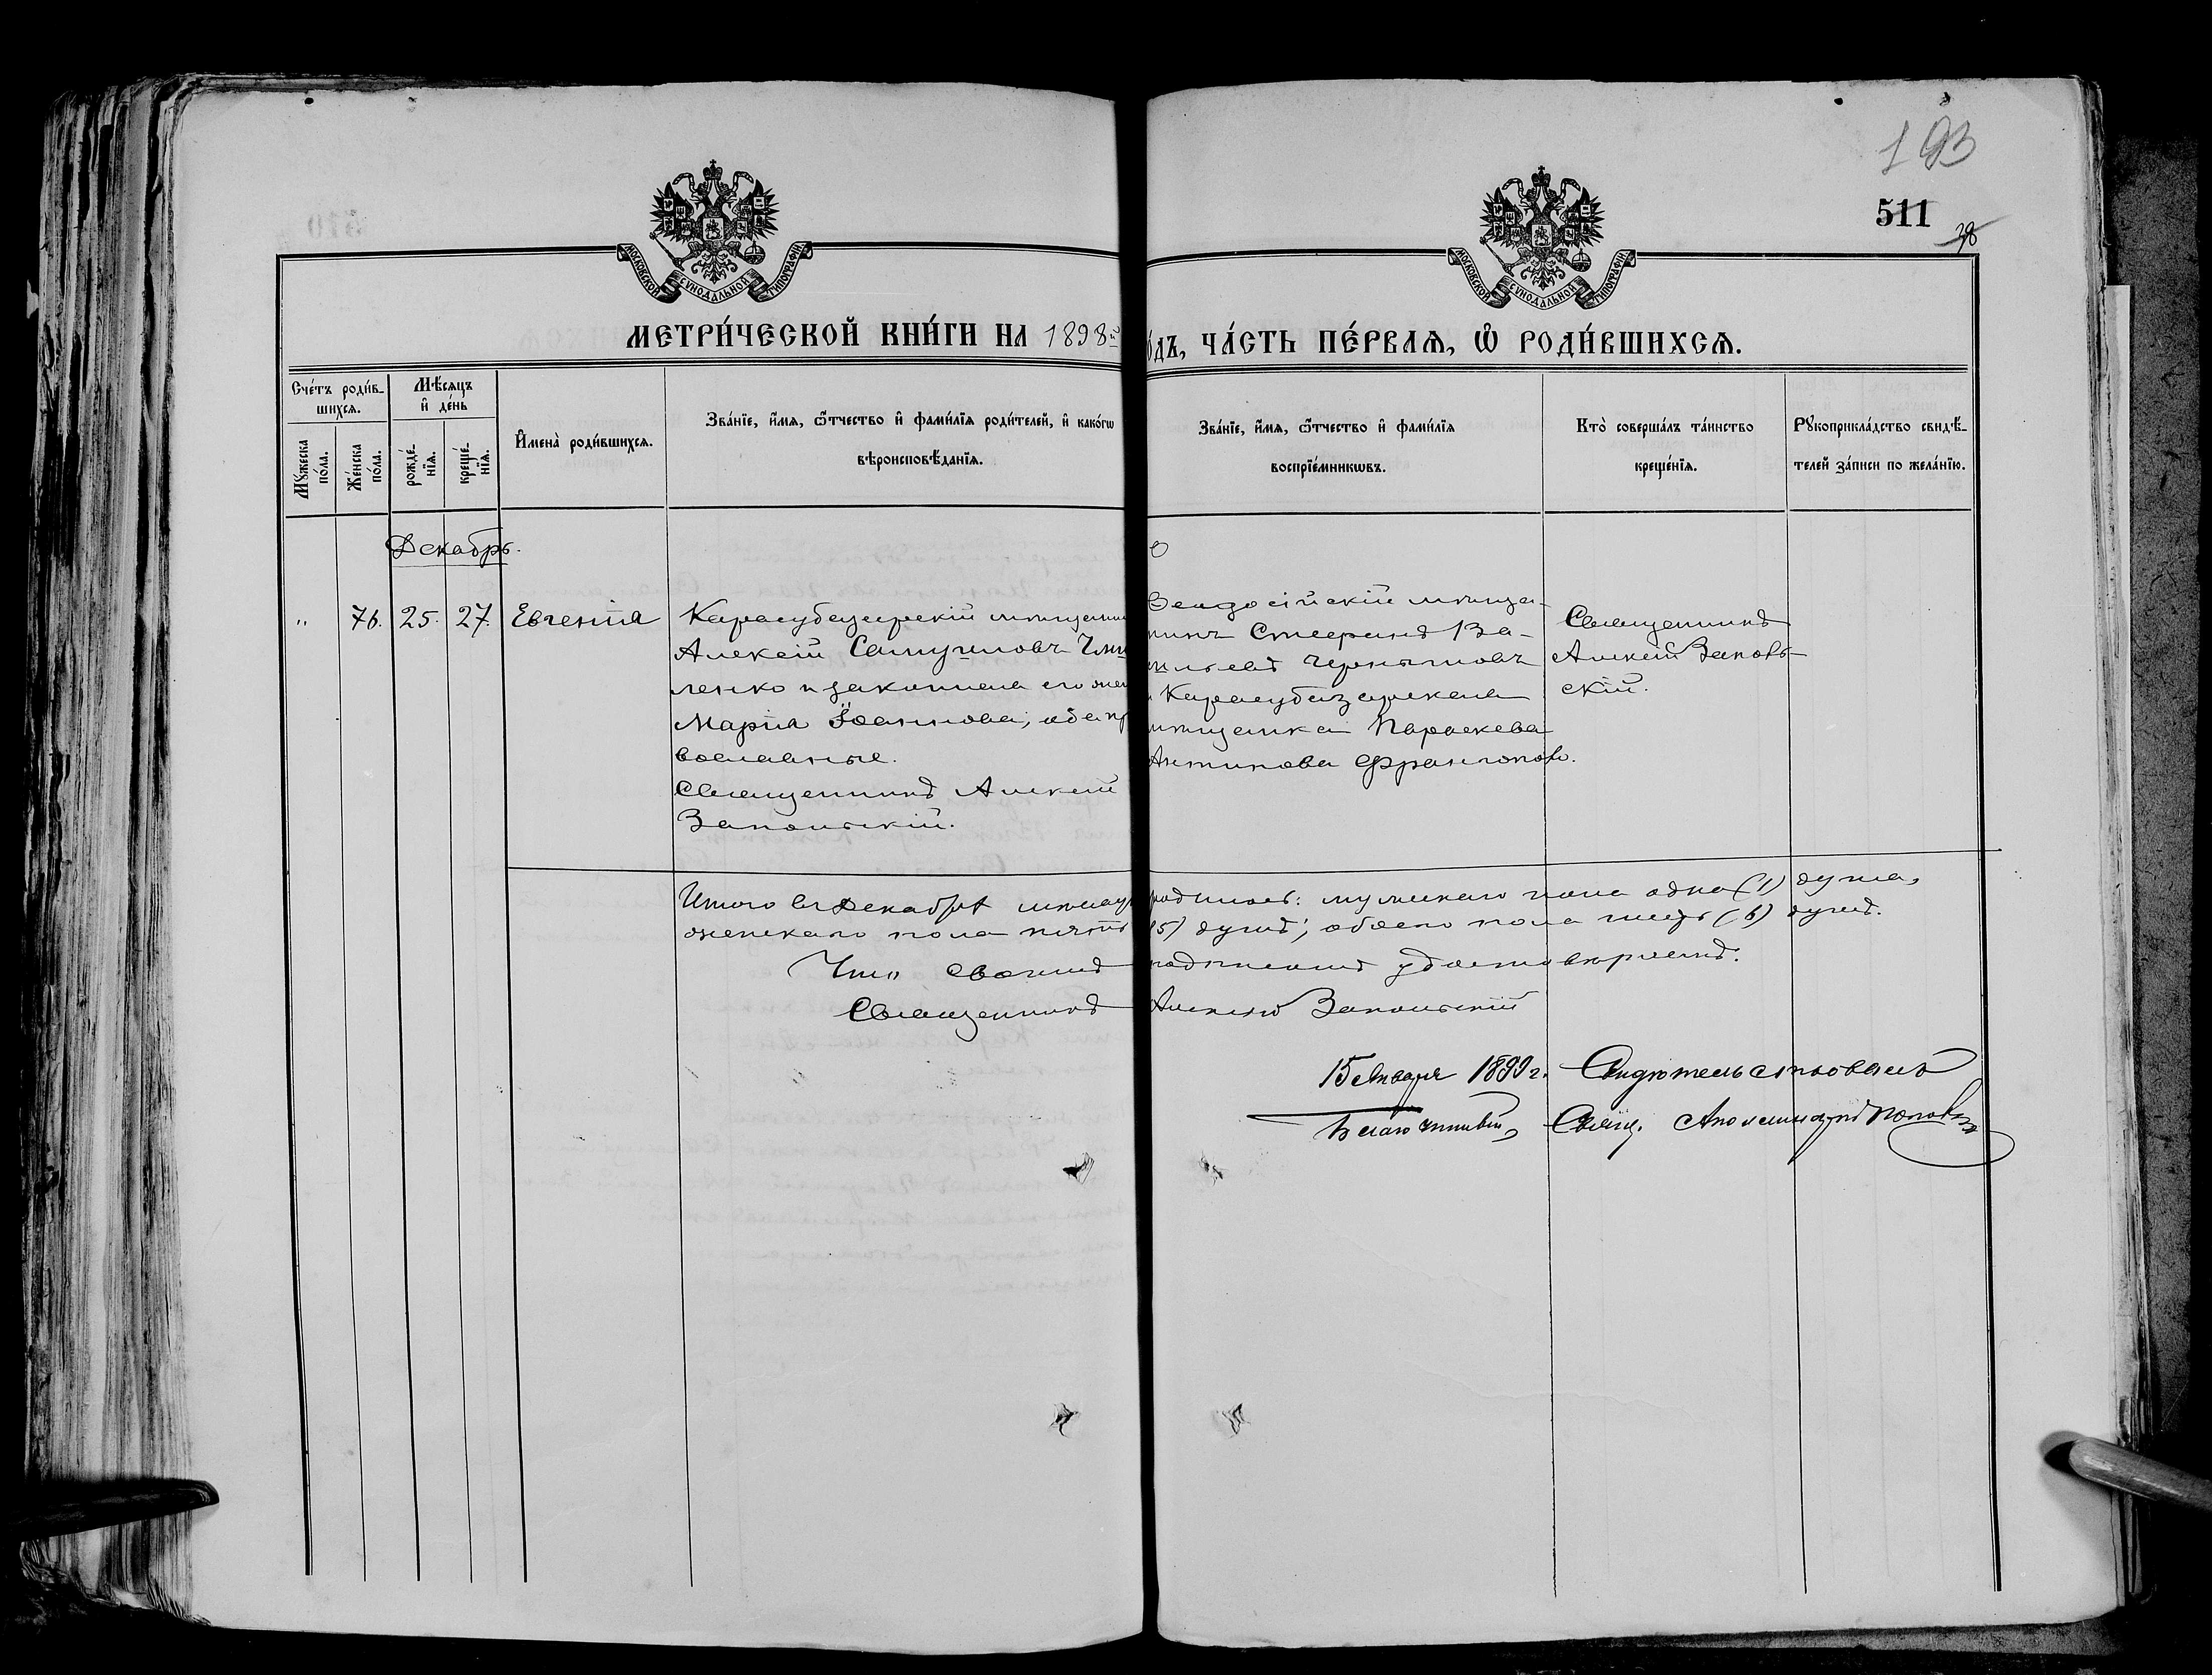 193
511
38
МОСКОВСКОЙ СУНОДАЛЬНОЙ ТИПОГРАФІИ
МОСКОВСКОЙ СУНОДАЛЬНОЙ ТИПОГРАФІИ
МЕТРИ́ЧЕСКОЙ КНИ́ГИ НА 1898й
о́дъ, ЧА́СТЬ ПЕ́РВАѦ, Ѡ҆ РОДИ́ВШИХСѦ.
Сче́тъ роди́в-
шихсѧ.
Мꙋ́жеска
по́ла.
Же́нска
по́ла.
Мѣ́сѧцъ
и҆ де́нь
рожде́-
нїѧ.
креще́-
нїѧ.
И҆мена̀ роди́вшихсѧ.
Зва́нїе, и҆́мѧ, ѻ҆́тчество и҆ фами́лїѧ роди́телей, и҆ како́гѡ
вѣроисповѣ́данїѧ.
Зва́нїе, и҆́мѧ, ѻ҆́тчество и҆ фами́лїѧ
воспрїе́мникѡвъ.
Кто̀ соверша́лъ та́инство
креще́нїѧ.
Рꙋкоприкла́дство свидѣ́-
телей за́писи по жела́нїю.
Декабрь.
"
76.
25.
27.
Евгенія
Карасубазарскій мѣщани
Алексій Самуиловъ
ленко и законная его жен
Марія Іоаннова, оба пр
вославные.
Священникъ Алексій
Запольскій.
Ѳеодосійскій мѣща-
нинъ Стефанъ Ва-
сильевъ Чернышовъ
и Карасубазарская
мѣщанка Параскева
Антипова
Священникъ
Алексій Заполь-
скій.
Итого въ Декабрѣ мѣсяц родилось: мужскаго пола одна (1) душа,
женскаго пола пять (5) душъ; обоего пола шесть (6) душъ.
Что своимъ подписомъ удостовѣряемъ.
Священникъ Алексій Запольскій
15 Января 1899 г. Свидѣтельствовалъ
Благочинный, Свящ. Аполлинарій Поповъ